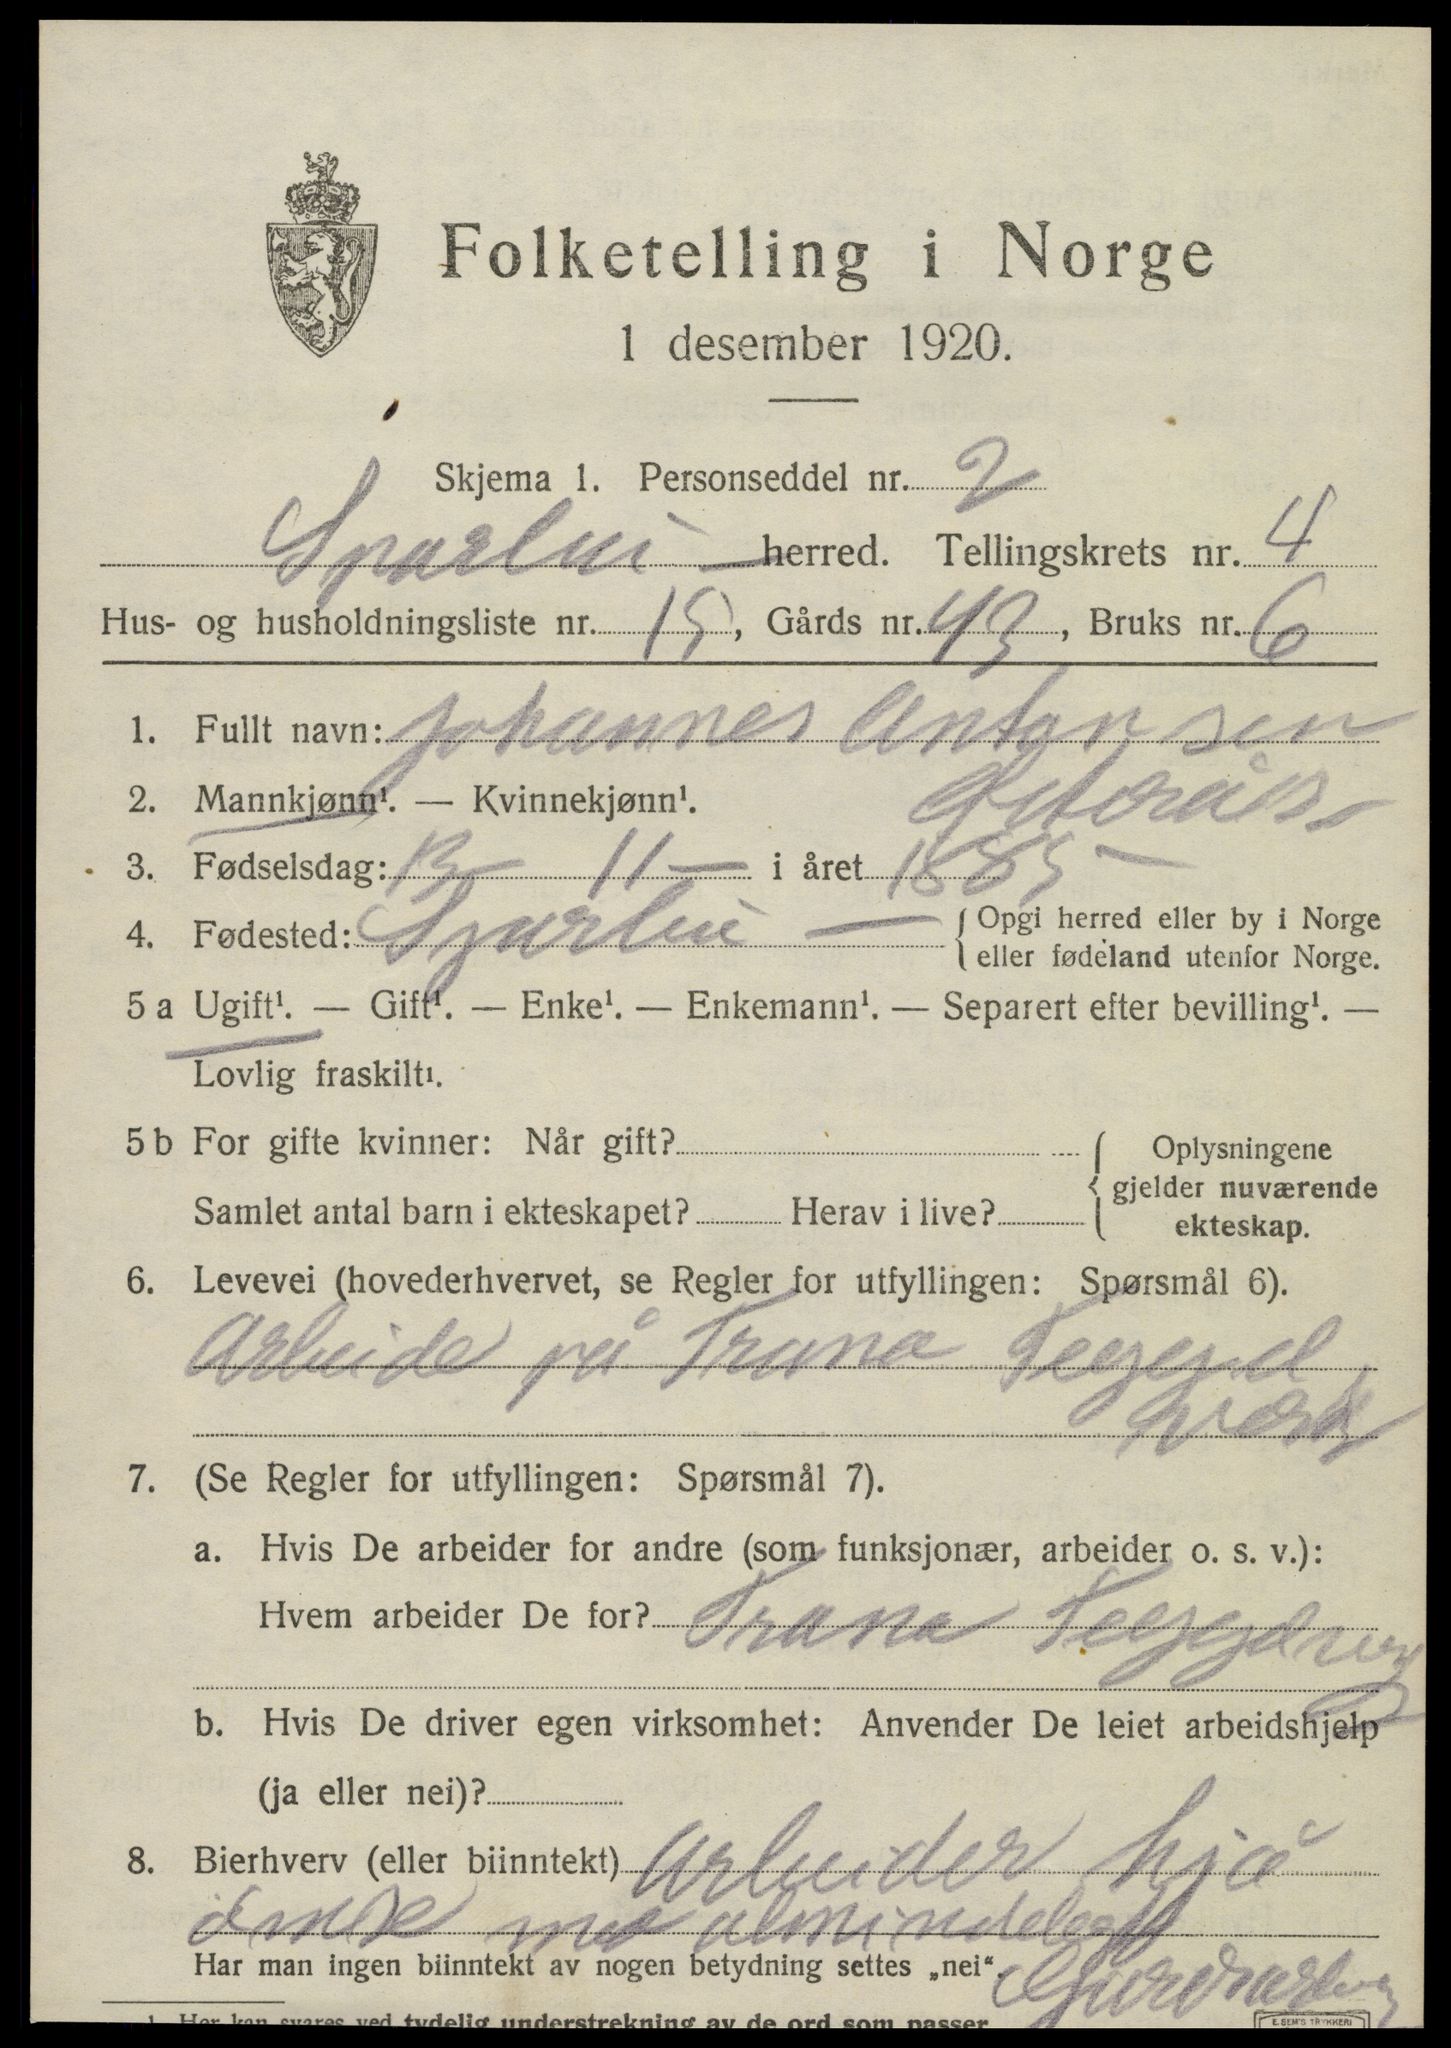 Folketelling i Norge
1 desember 1920.
Skjema 1. Personseddel nr. 2
Sparbui herred. Tellingskrets nr. 4
Hus- og husholdningsliste nr. 15, Gårds nr. 43, Bruks nr. 6
1. Fullt navn: Johannes Antonsen
2. Mannkjønn¹. — Kvinnekjønn¹.
3. Fødselsdag: 13 — 11 — i året 1885 —
4. Fødested: Sparbui — { Opgi herred eller by i Norge
eller fødeland utenfor Norge.
5 a Ugift¹. — Gift¹. — Enke¹. — Enkemann¹. — Separert efter bevilling¹. —
Lovlig fraskilt¹.
5 b For gifte kvinner: Når gift? { Oplysningene
gjelder nuværende
Samlet antal barn i ekteskapet? Herav i live?
ekteskap.
6. Levevei (hovederhvervet, se Regler for utfyllingen: Spørsmål 6).
Arbeide på Trana Teggel
værk
7. (Se Regler for utfyllingen: Spørsmål 7).
a. Hvis De arbeider for andre (som funksjonær, arbeider o. s. v.):
Hvem arbeider De for? Trana
b. Hvis De driver egen virksomhet: Anvender De leiet arbeidshjelp
(ja eller nei)?
8. Bierhverv (eller biinntekt) Arbeider hjå
andre me almindeleg
Har man ingen biinntekt av nogen betydning settes „nei“.
Gardsarbei
1 Her kan svares ved tydelig understrekning av de ord som passer
E. SEM'S TRYKKERI